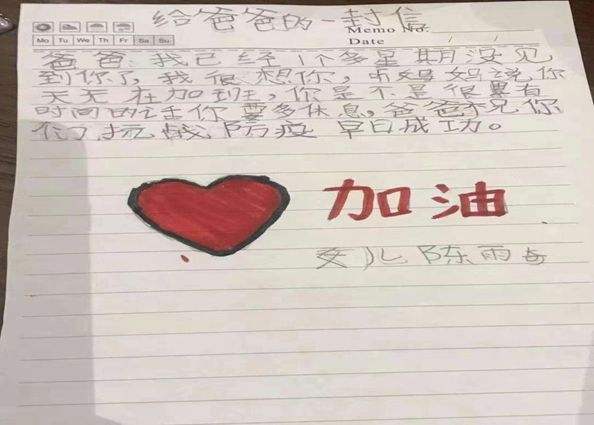 给爸爸的一封信
Memo No.
Mo Tu We Th Fr Sa Su
Date / /
爸爸:我已经1个多星期没见
到你了,我很想你,听妈妈说你
天天在加班,你是不是很累有
时间的话你要多休息,爸爸祝你
们抗战防疫早日成功。
加油
女儿陈雨